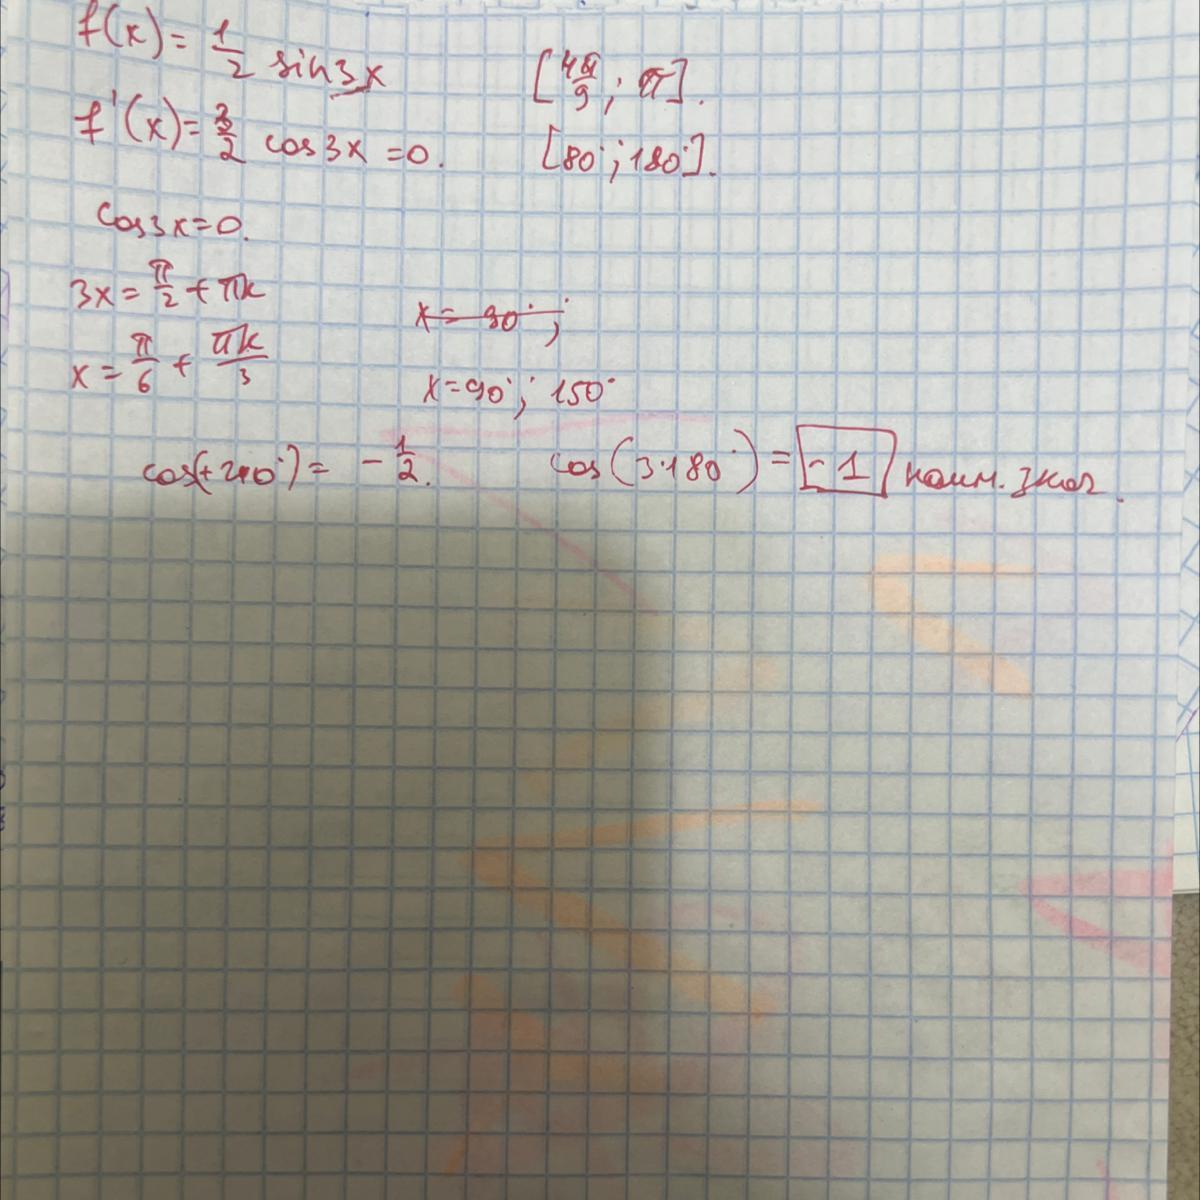 f(x) = 1/2 sin 3x [4π/9; π].
f'(x) = 3/2 cos 3x = 0. [80°; 180°].
cos 3x = 0.
3x = π/2 + πk
x = 90°;
x = π/6 + πk/3
x = 90°; 150°
cos(+240°) = -1/2. cos(3·180°) = -1 наим. знач.